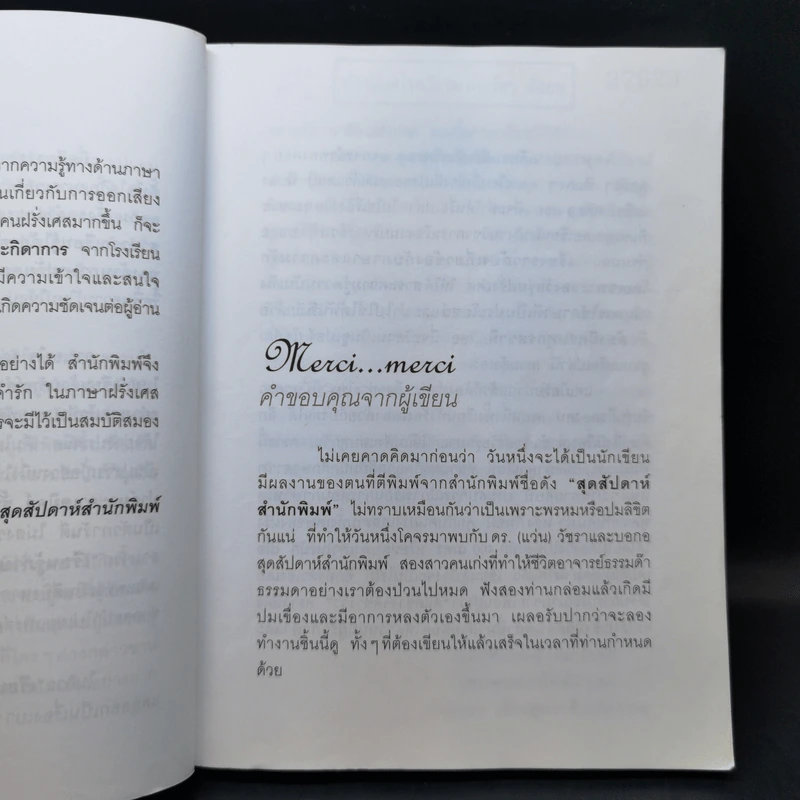 ากความรู้ทางด้านภาษา
นเกี่ยวกับการออกเสียง
คนฝรั่งเศสมากขึ้น ก็จะ
ะกิดาการ จากโรงเรียน
มีความเข้าใจและสนใจ
กิดความชัดเจนต่อผู้อ่าน
อย่างได้ สำนักพิมพ์จึง
คำรัก ในภาษาฝรั่งเศส
รจะมีไว้เป็นสมบัติสมอง
สุดสัปดาห์สำนักพิมพ์
Merci...merci
คำขอบคุณจากผู้เขียน
ไม่เคยคาดคิดมาก่อนว่า วันหนึ่งจะได้เป็นนักเขียน
มีผลงานของตนที่ตีพิมพ์จากสำนักพิมพ์ชื่อดัง "สุดสัปดาห์
สำนักพิมพ์" ไม่ทราบเหมือนกันว่าเป็นเพราะพรหมหรือปมลิขิต
กันแน่ ที่ทำให้วันหนึ่งโคจรมาพบกับ ดร. (แว่น) วัชราและบอกอ
สุดสัปดาห์สำนักพิมพ์ สองสาวคนเก่งที่ทำให้ชีวิตอาจารย์ธรรมด๊า
ธรรมดาอย่างเราต้องป่วนไปหมด ฟังสองท่านกล่อมแล้วเกิดมี
ปมเขื่องและมีอาการหลงตัวเองขึ้นมา เผลอรับปากว่าจะลอง
ทำงานชิ้นนี้ดู ทั้งๆ ที่ต้องเขียนให้แล้วเสร็จในเวลาที่ท่านกำหนด
ด้วย